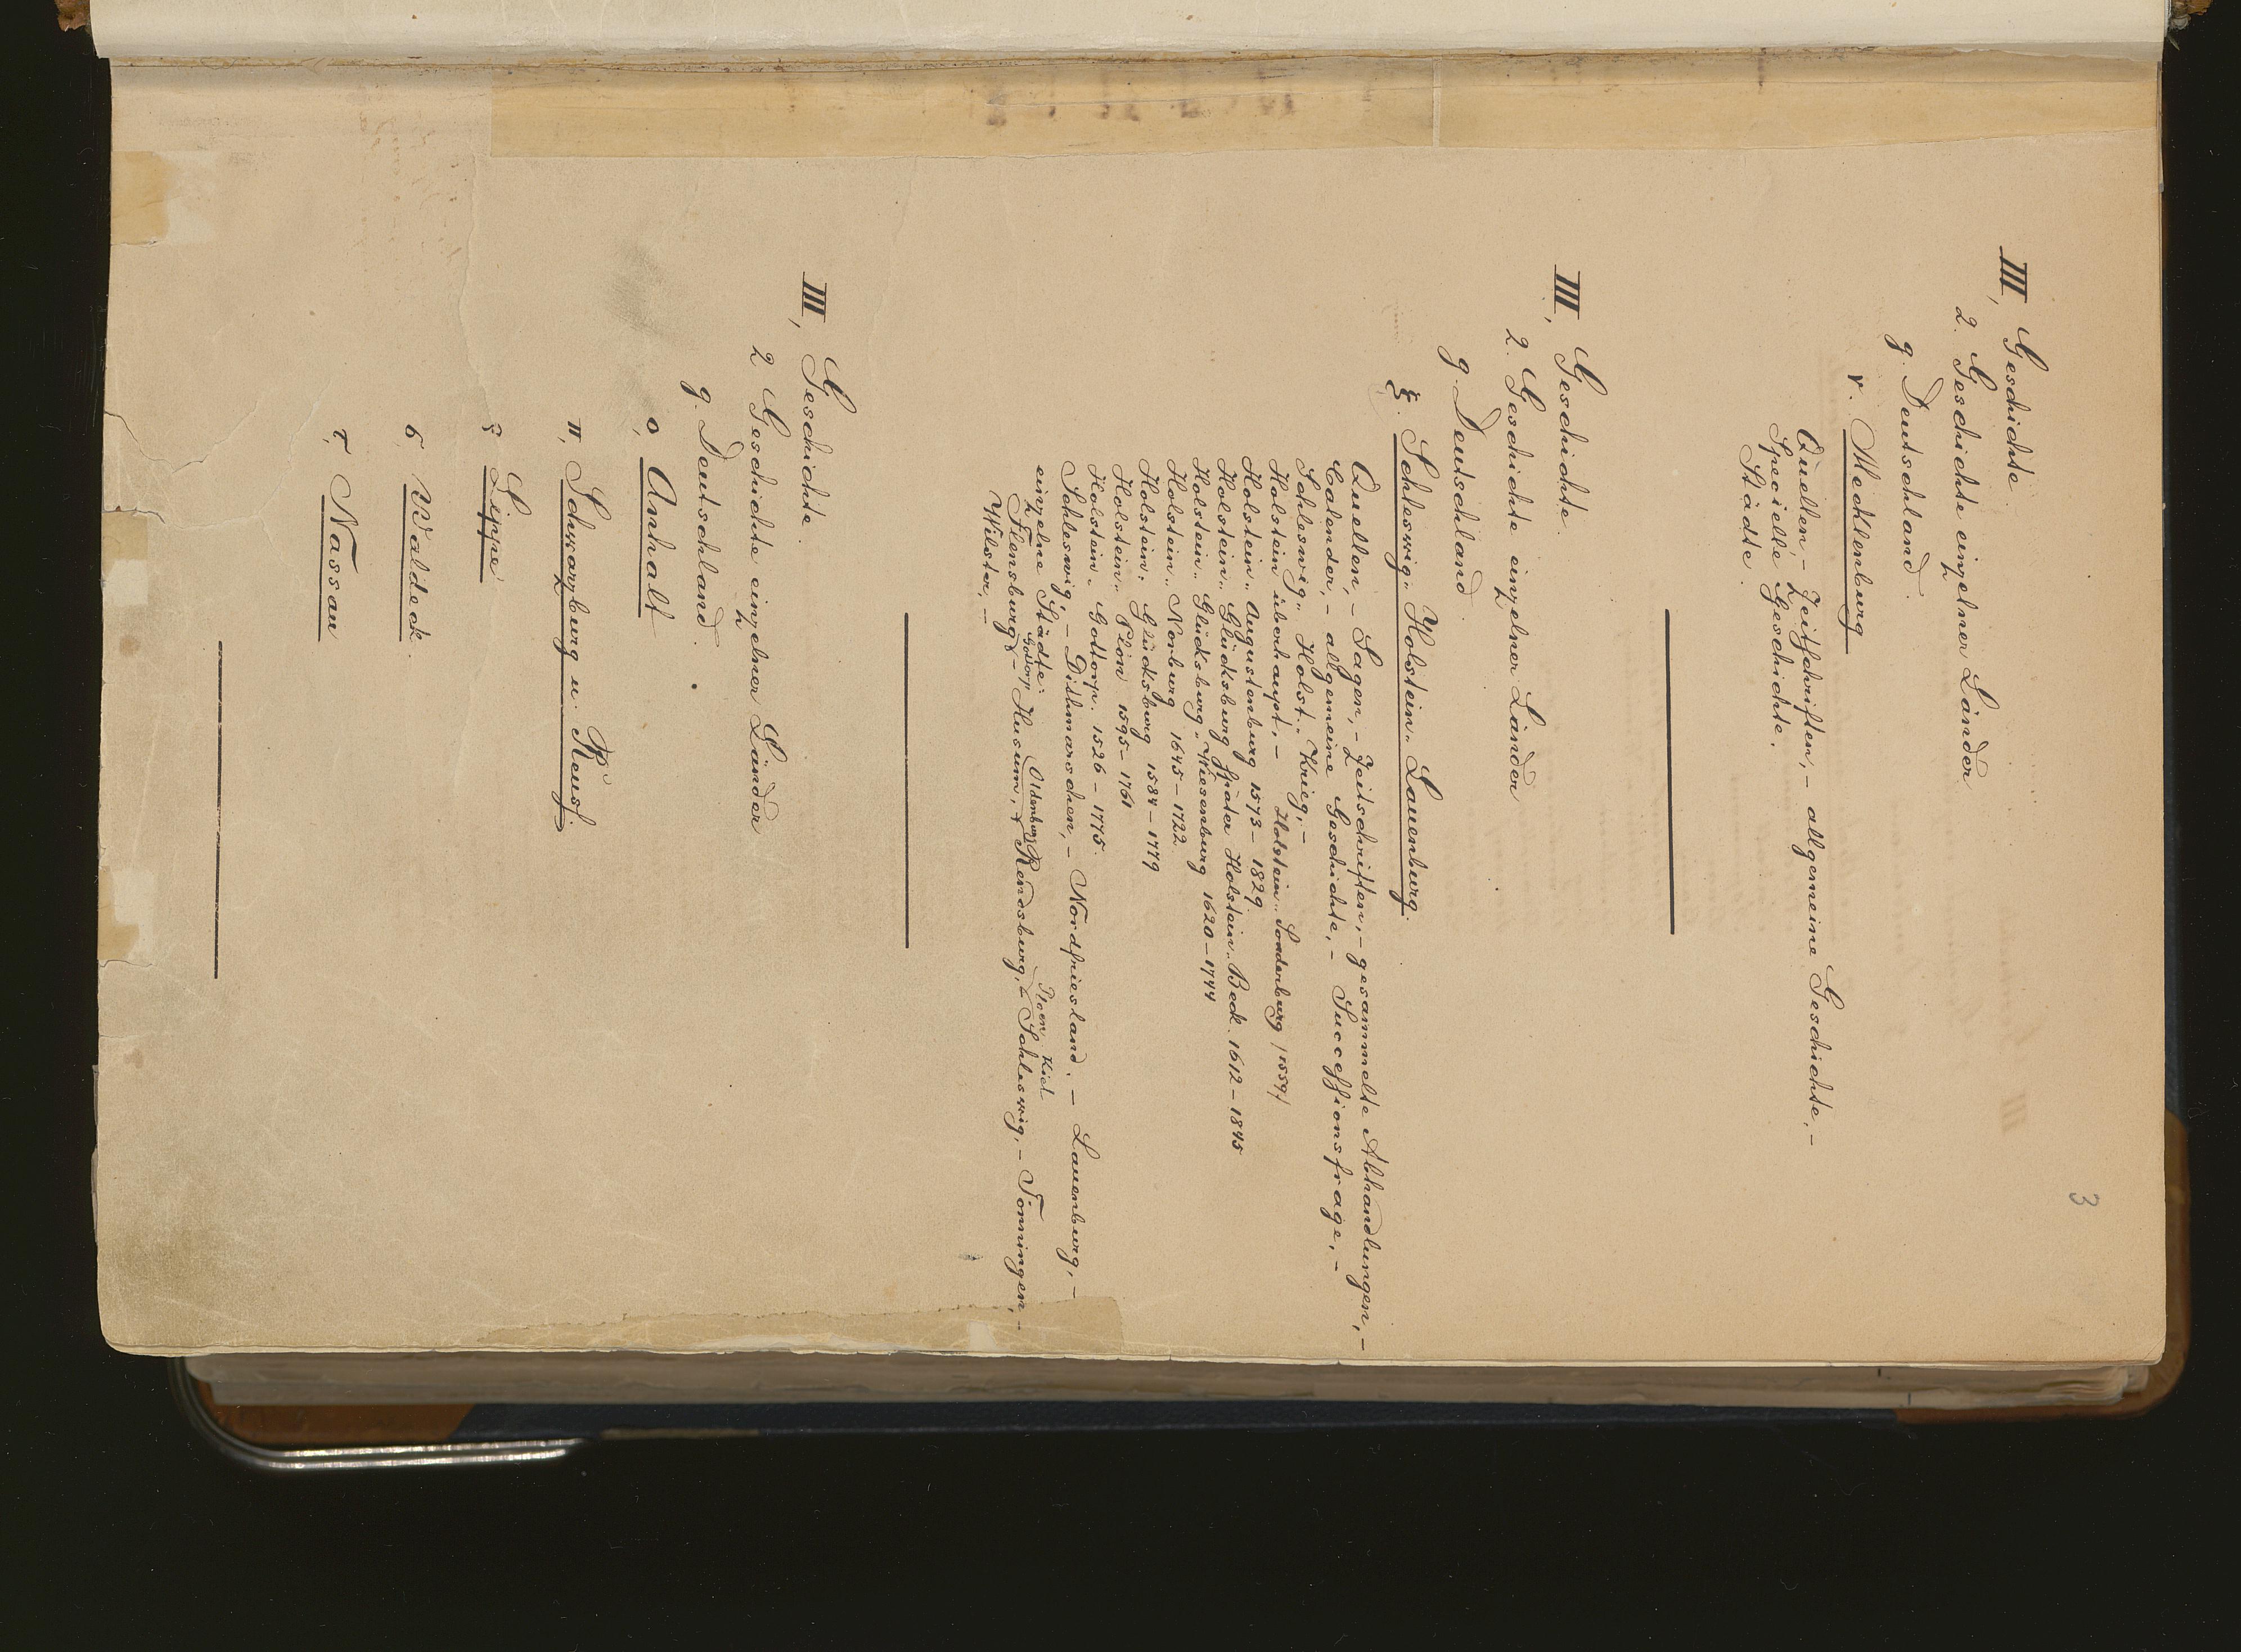 3
III, Geschichte.
2. Geschichte einzelner Länder
g. Deutschland.
ν. Mecklenburg
Quellen, - Zeitschriften, - allgemeine Geschichte, -
Specielle Geschichte.
Städte.
III, Geschichte.
2. Geschichte einzelner Länder
g. Deutschland
ξ. Schleswig-Holstein-Lauenburg.
Quellen, - Sagen, - Zeitschriften, - gesammelte Abhandlungen, -
Calender, - allgemeine Geschichte, - Successionsfrage, -
Schleswig-Holst. Krieg, -
Holstein überhaupt, - Holstein-Sonderburg /1559/
Holstein-Augustenburg 1573-1829
Holstein-Glücksburg später Holstein-Beck 1612-1845
Holstein-Glücksburg-Wiesenburg 1620-1744
Holstein-Norburg 1645-1722
Holstein-Glücksburg 1584-1779
Holstein-Plön 1595-1761
Holstein-Gottorp. 1526-1775.
Schleswig, - Dithmarschen, - Nordfriesland. - Lauenburg, -
einzelne Städte:
Gottorp Oldenburg Ploen Kiel
Flensburg, - Husum, - Rendsburg, - Schleswig, - Tönningen, -
Wilster, -
III, Geschichte.
2 Geschichte einzelner Länder
g. Deutschland.
ο, Anhalt
π, Schwarzburg u. Reuß.
ς Lippe
σ Waldeck.
τ, Nassau